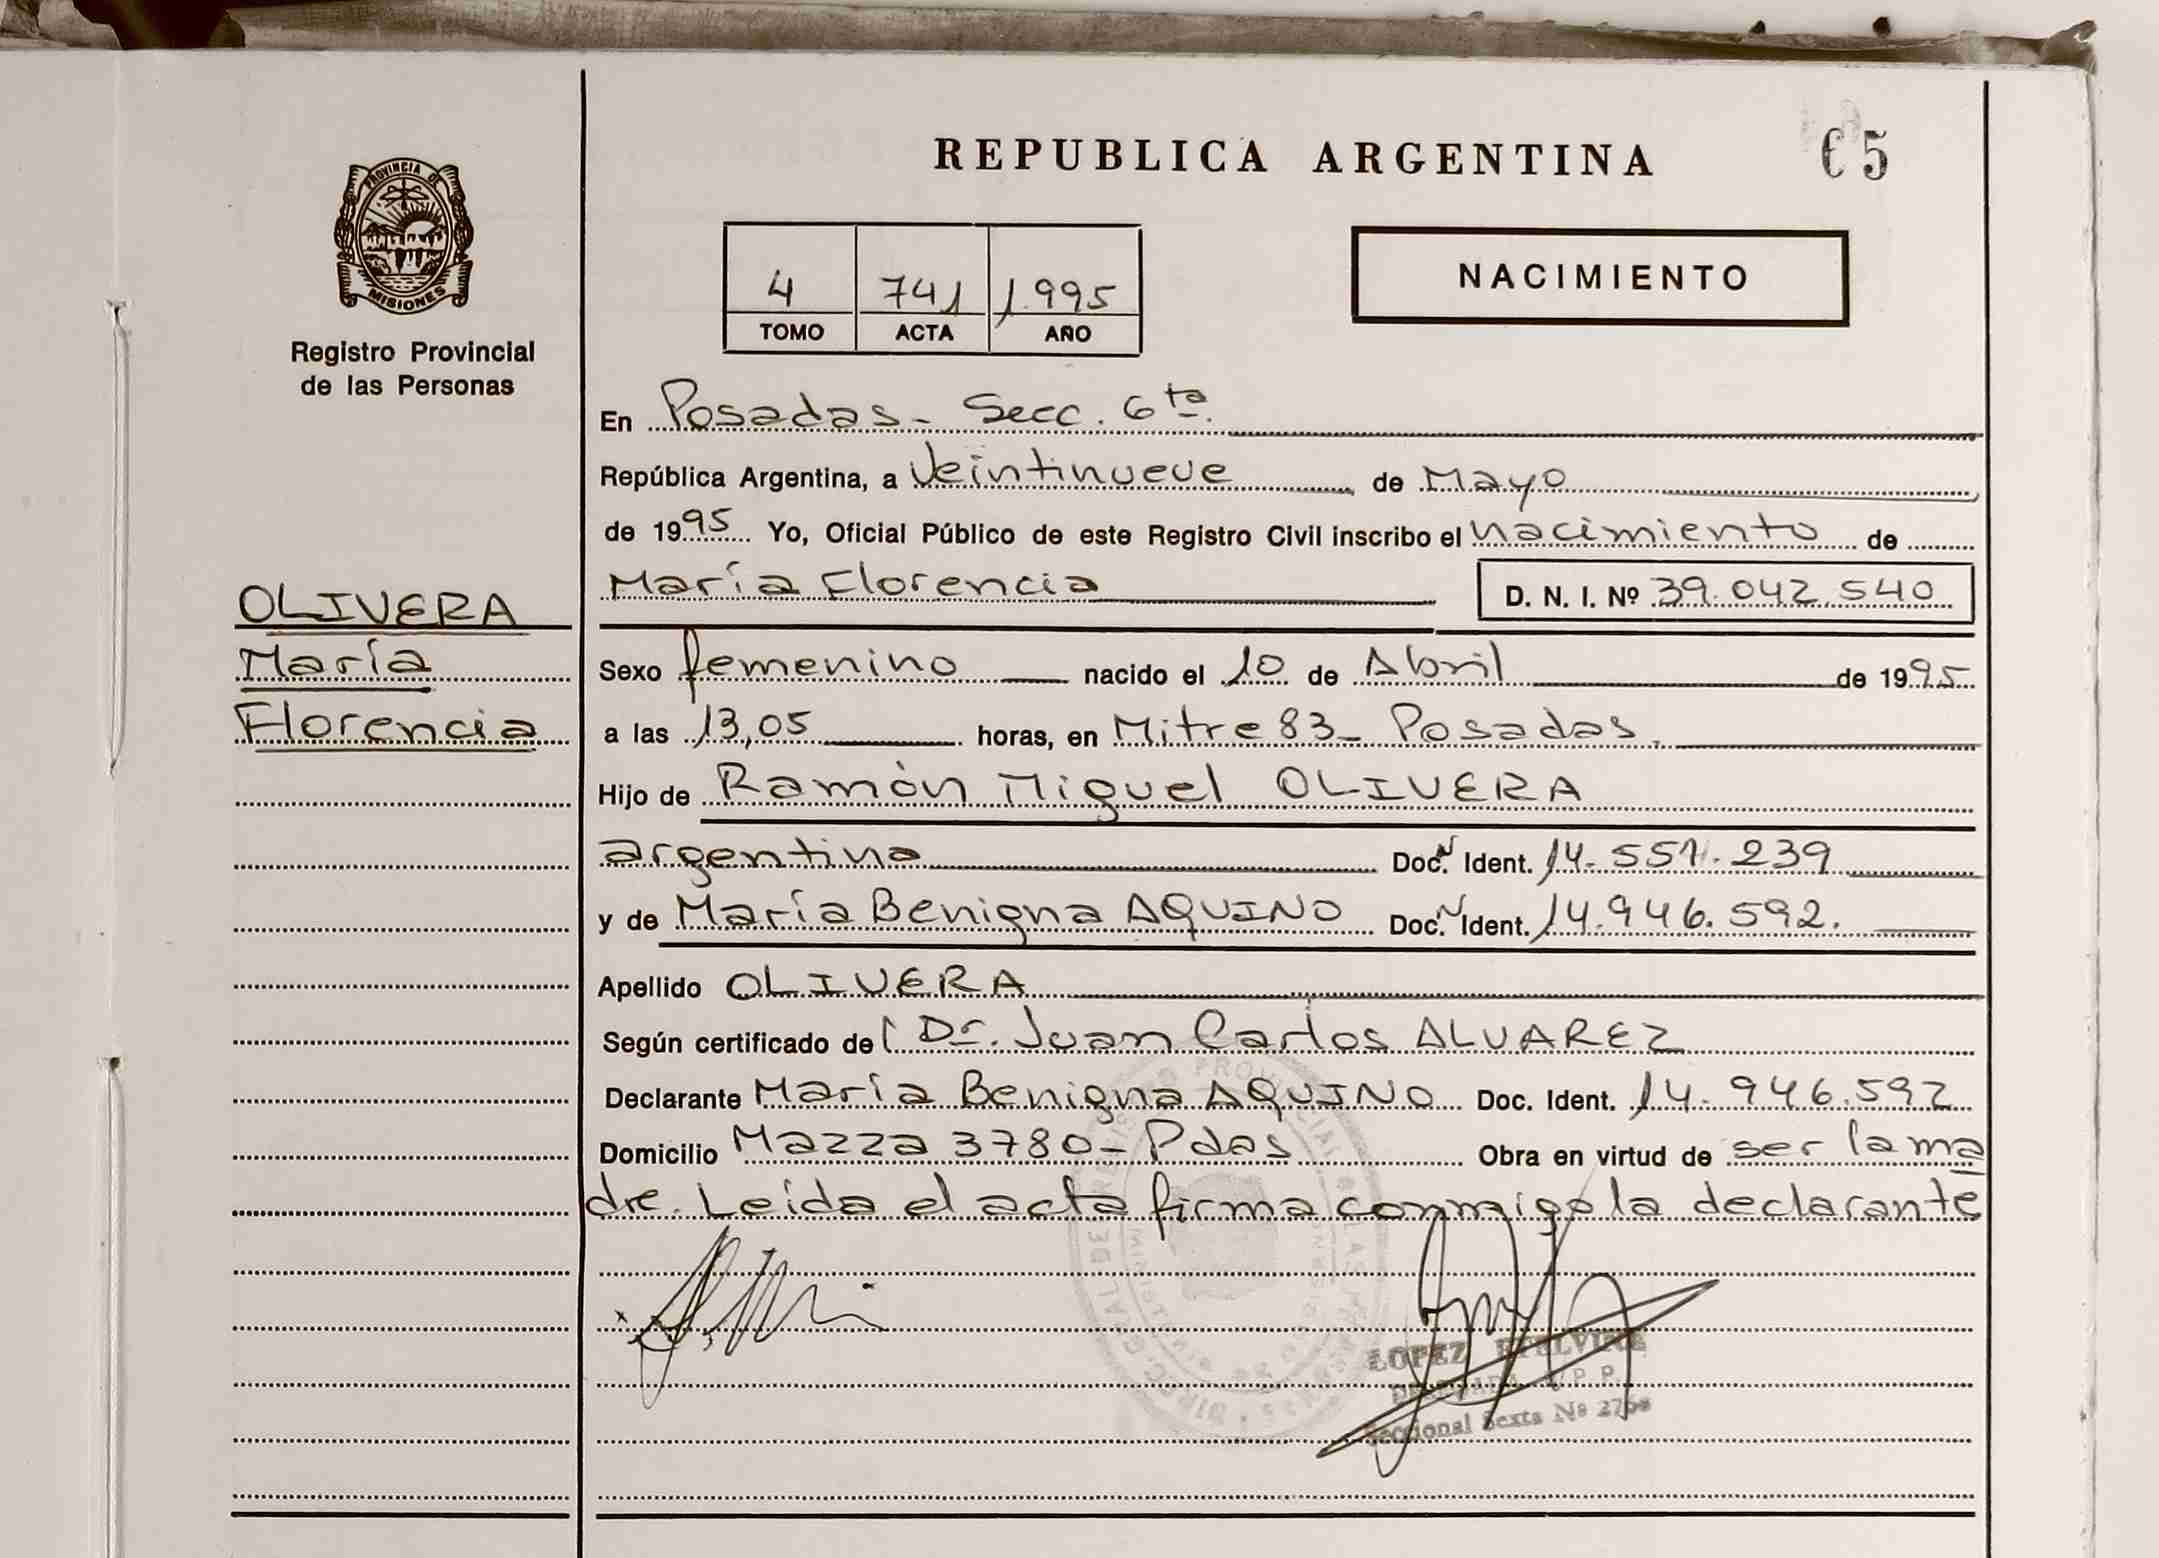 REPUBLICA ARGENTINA
65
PROVINCIA DE
MISIONES
Registro Provincial
de las Personas
4 741 1.995
TOMO ACTA AÑO
NACIMIENTO
En Posadas - Secc. 6ta.
República Argentina, a Veintinueve de Mayo
de 1995 Yo, Oficial Público de este Registro Civil inscribo el nacimiento de
María Florencia D. N. I. Nº 39.042.540
OLIVERA
María
Florencia
Sexo femenino nacido el 10 de Abril de 1995
a las 13,05 horas, en Mitre 83 - Posadas.
Hijo de Ramón Miguel OLIVERA
argentino Doc. N Ident. 14.551.239
y de María Benigna AQUINO Doc. N Ident. 14.946.592.
Apellido OLIVERA
Según certificado del Dr. Juan Carlos ALVAREZ
Declarante María Benigna AQUINO Doc. Ident. 14.946.592
Domicilio Mazza 3780 - Pdas Obra en virtud de ser la ma
dre. Leída el acta firma conmigo la declarante
LOPEZ ETELVINA
DELEGADA R.P.P.
Seccional Sexta Nº